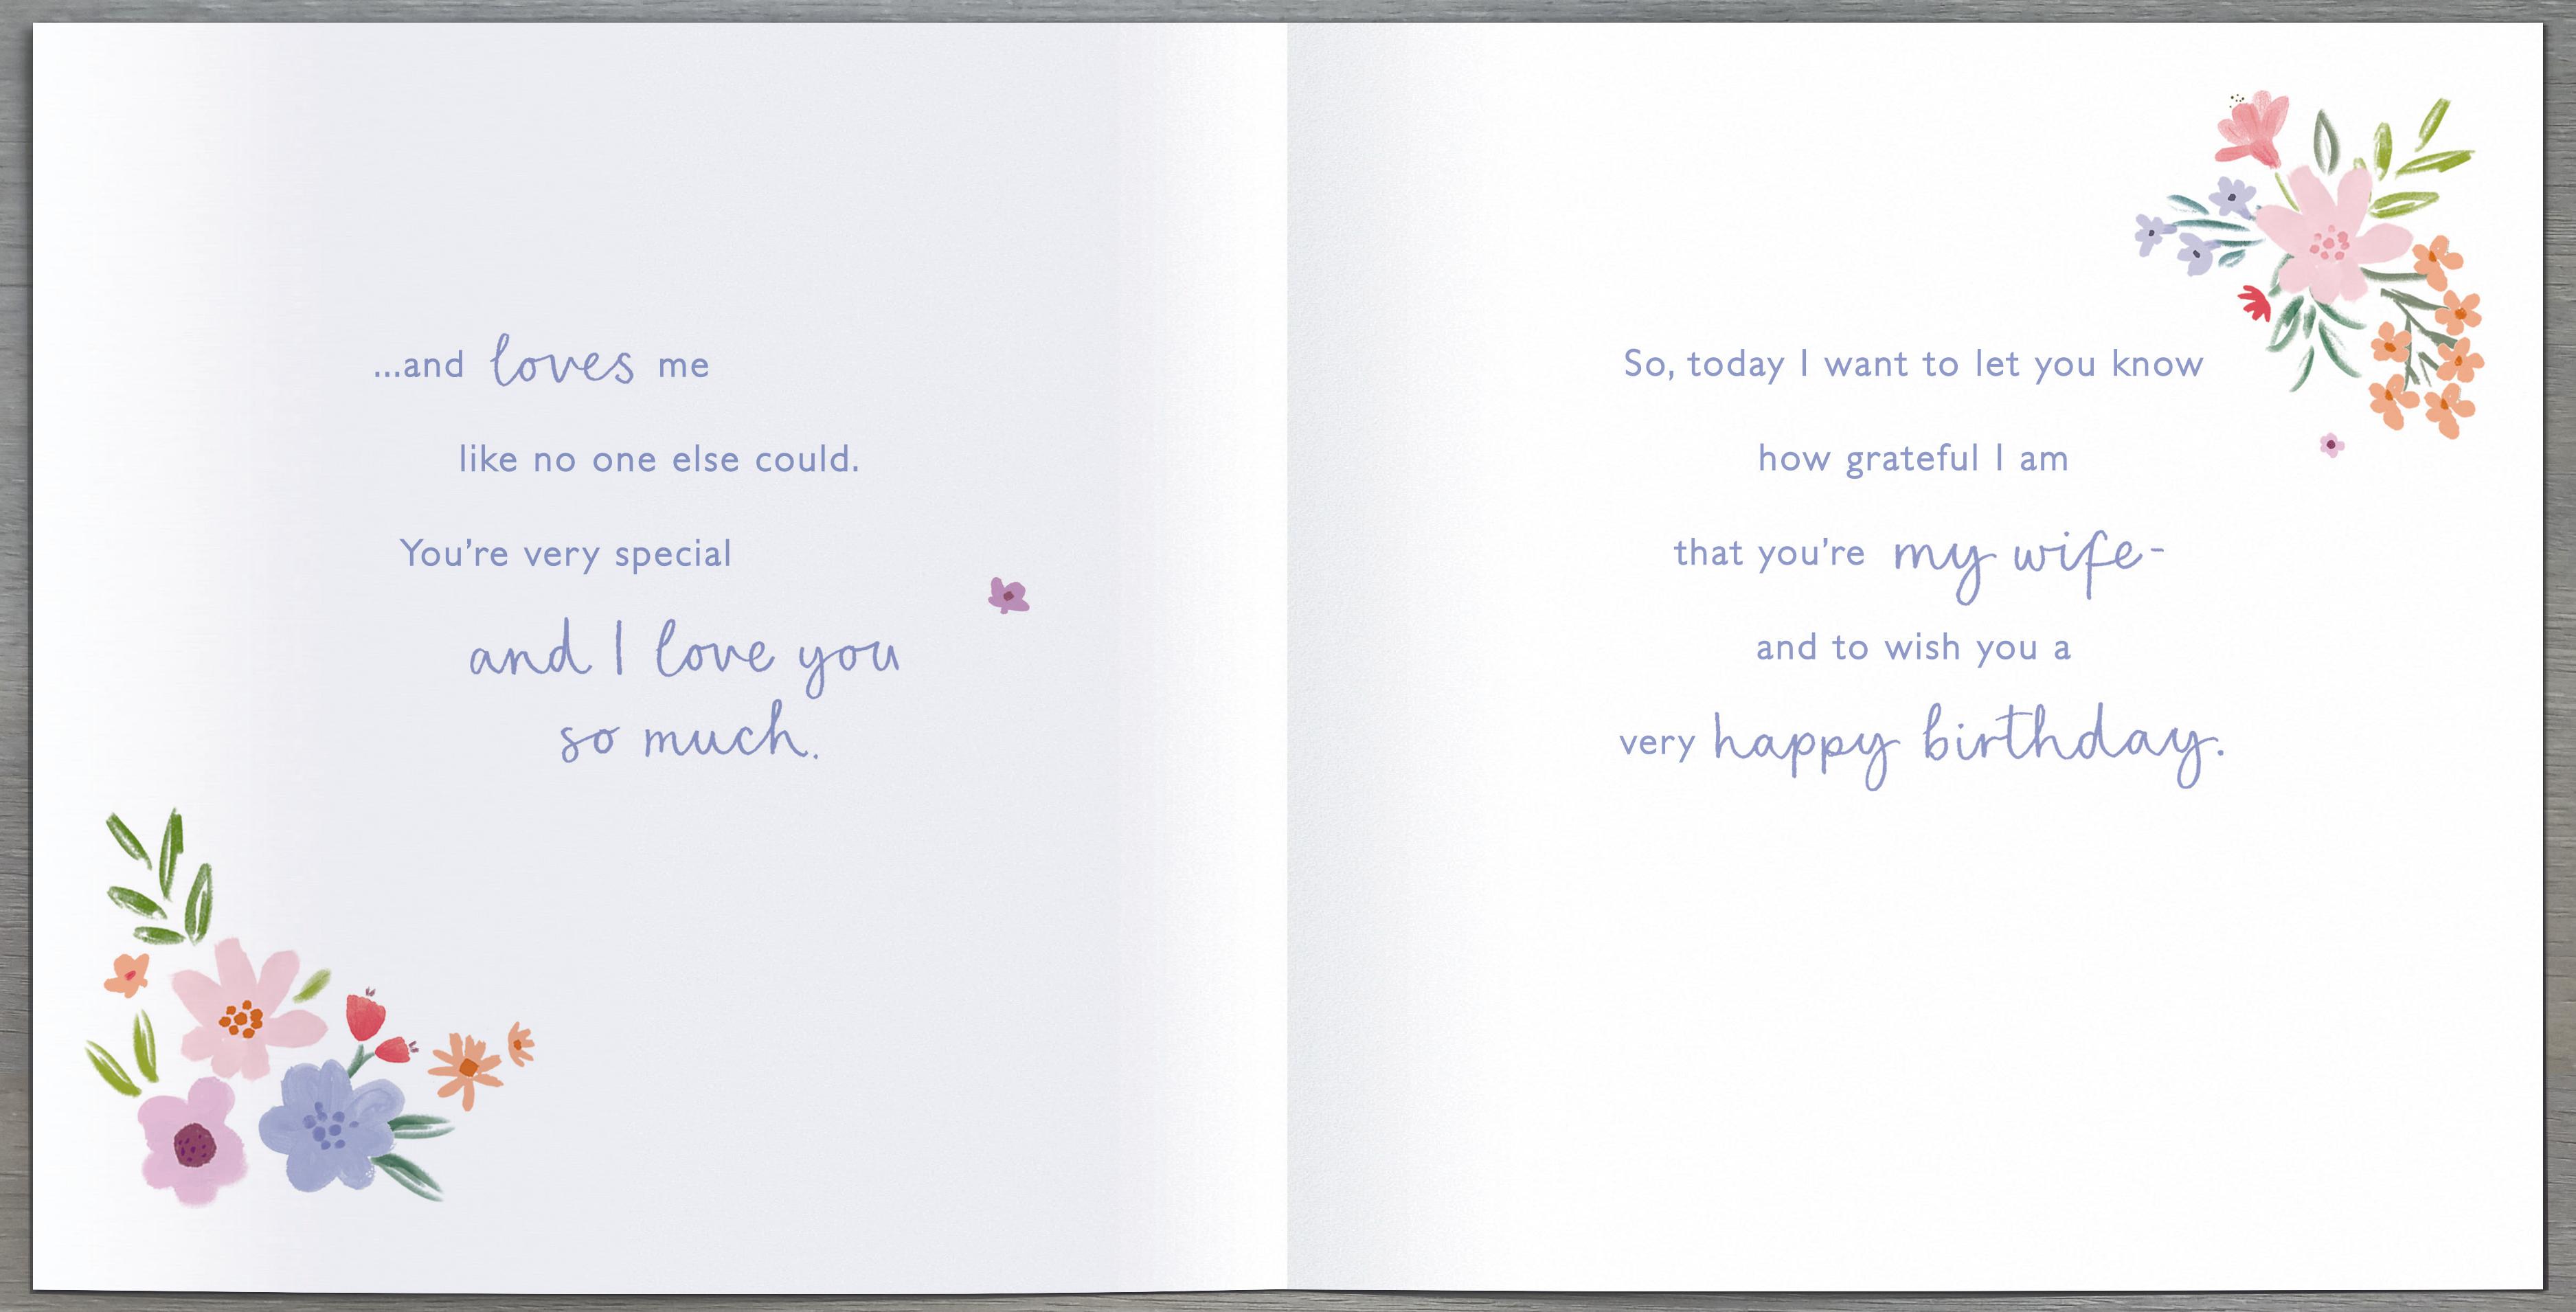 ...and loves me
like no one else could.
You're very special
and I love you
so much.
So, today I want to let you know
how grateful I am
that you're my wife-
and to wish you a
very happy birthday.